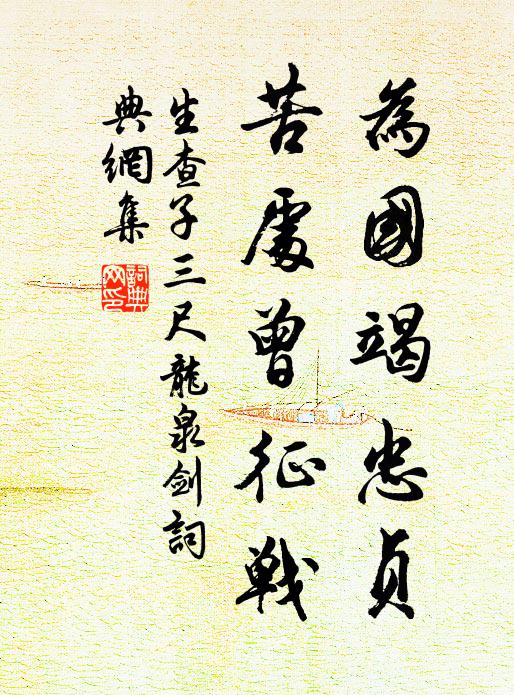 為國竭忠貞
苦處曾征戰
生查子三尺龍泉劍詞
典網集
詞典
网印